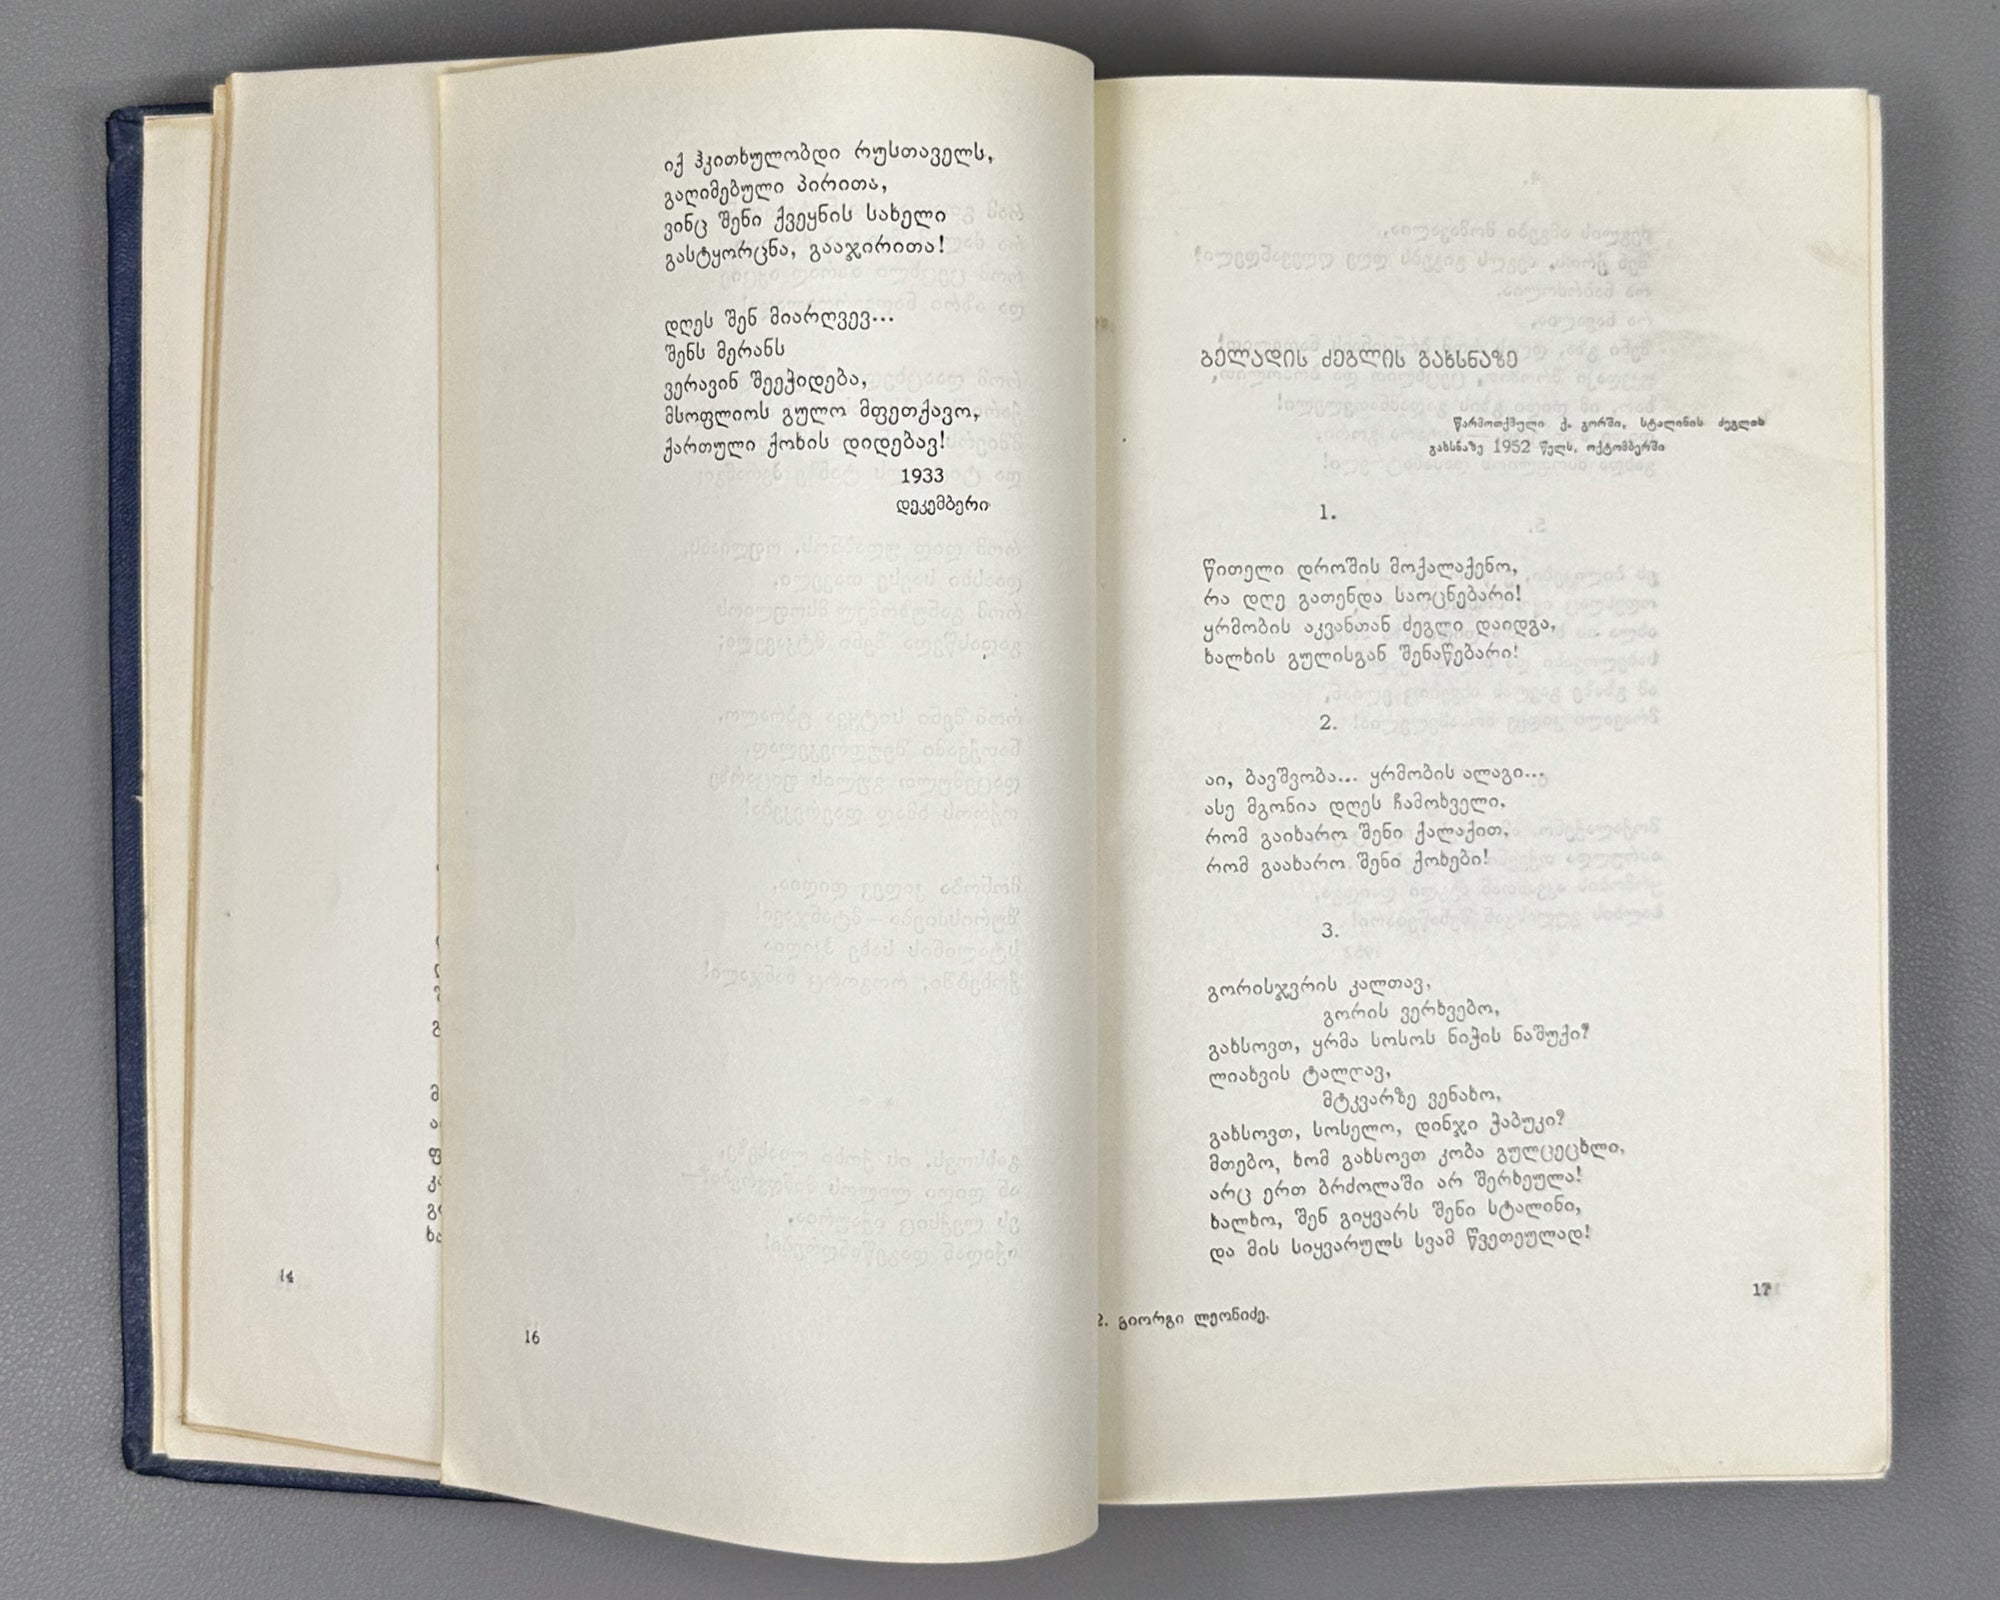 იქ ჰკითხულობდი რუსთაველს,
გაღიმებული პირითა,
ვინც შენი ქვეყნის სახელი
გასტყორცნა, გააჯირითა!
დღეს შენ მიარღვევ...
შენს მერანს
ვერავინ შეეჭიდება,
მსოფლიოს გულო მფეთქავო,
ქართული ქოხის დიდებავ!
1933
დეკემბერი
14
16
ბელადის ძეგლის გახსნაზე
წარმოთქმული ქ. გორში, სტალინის ძეგლის
გახსნაზე 1952 წელს, ოქტომბერში
1.
წითელი დროშის მოქალაქენო,
რა დღე გათენდა საოცნებარი!
ყრმობის აკვანთან ძეგლი დაიდგა,
ხალხის გულისგან შენაწებარი!
2.
აი, ბავშვობა... ყრმობის ალაგი...
ასე მგონია დღეს ჩამოხველი,
რომ გაიხარო შენი ქალაქით,
რომ გაახარო შენი ქოხები!
3.
გორისჯვრის კალთავ,
გორის ვერხვებო,
გახსოვთ, ყრმა სოსოს ნიჭის ნაშუქი?
ლიახვის ტალღავ,
მტკვარზე ვენახო,
გახსოვთ, სოსელო, დინჯი ჭაბუკი?
მთებო, ხომ გახსოვთ კობა გულცეცხლი,
არც ერთ ბრძოლაში არ შერხეულა!
ხალხო, შენ გიყვარს შენი სტალინი,
და მის სიყვარულს სვამ წვეთეულად!
17
2. გიორგი ლეონიძე.